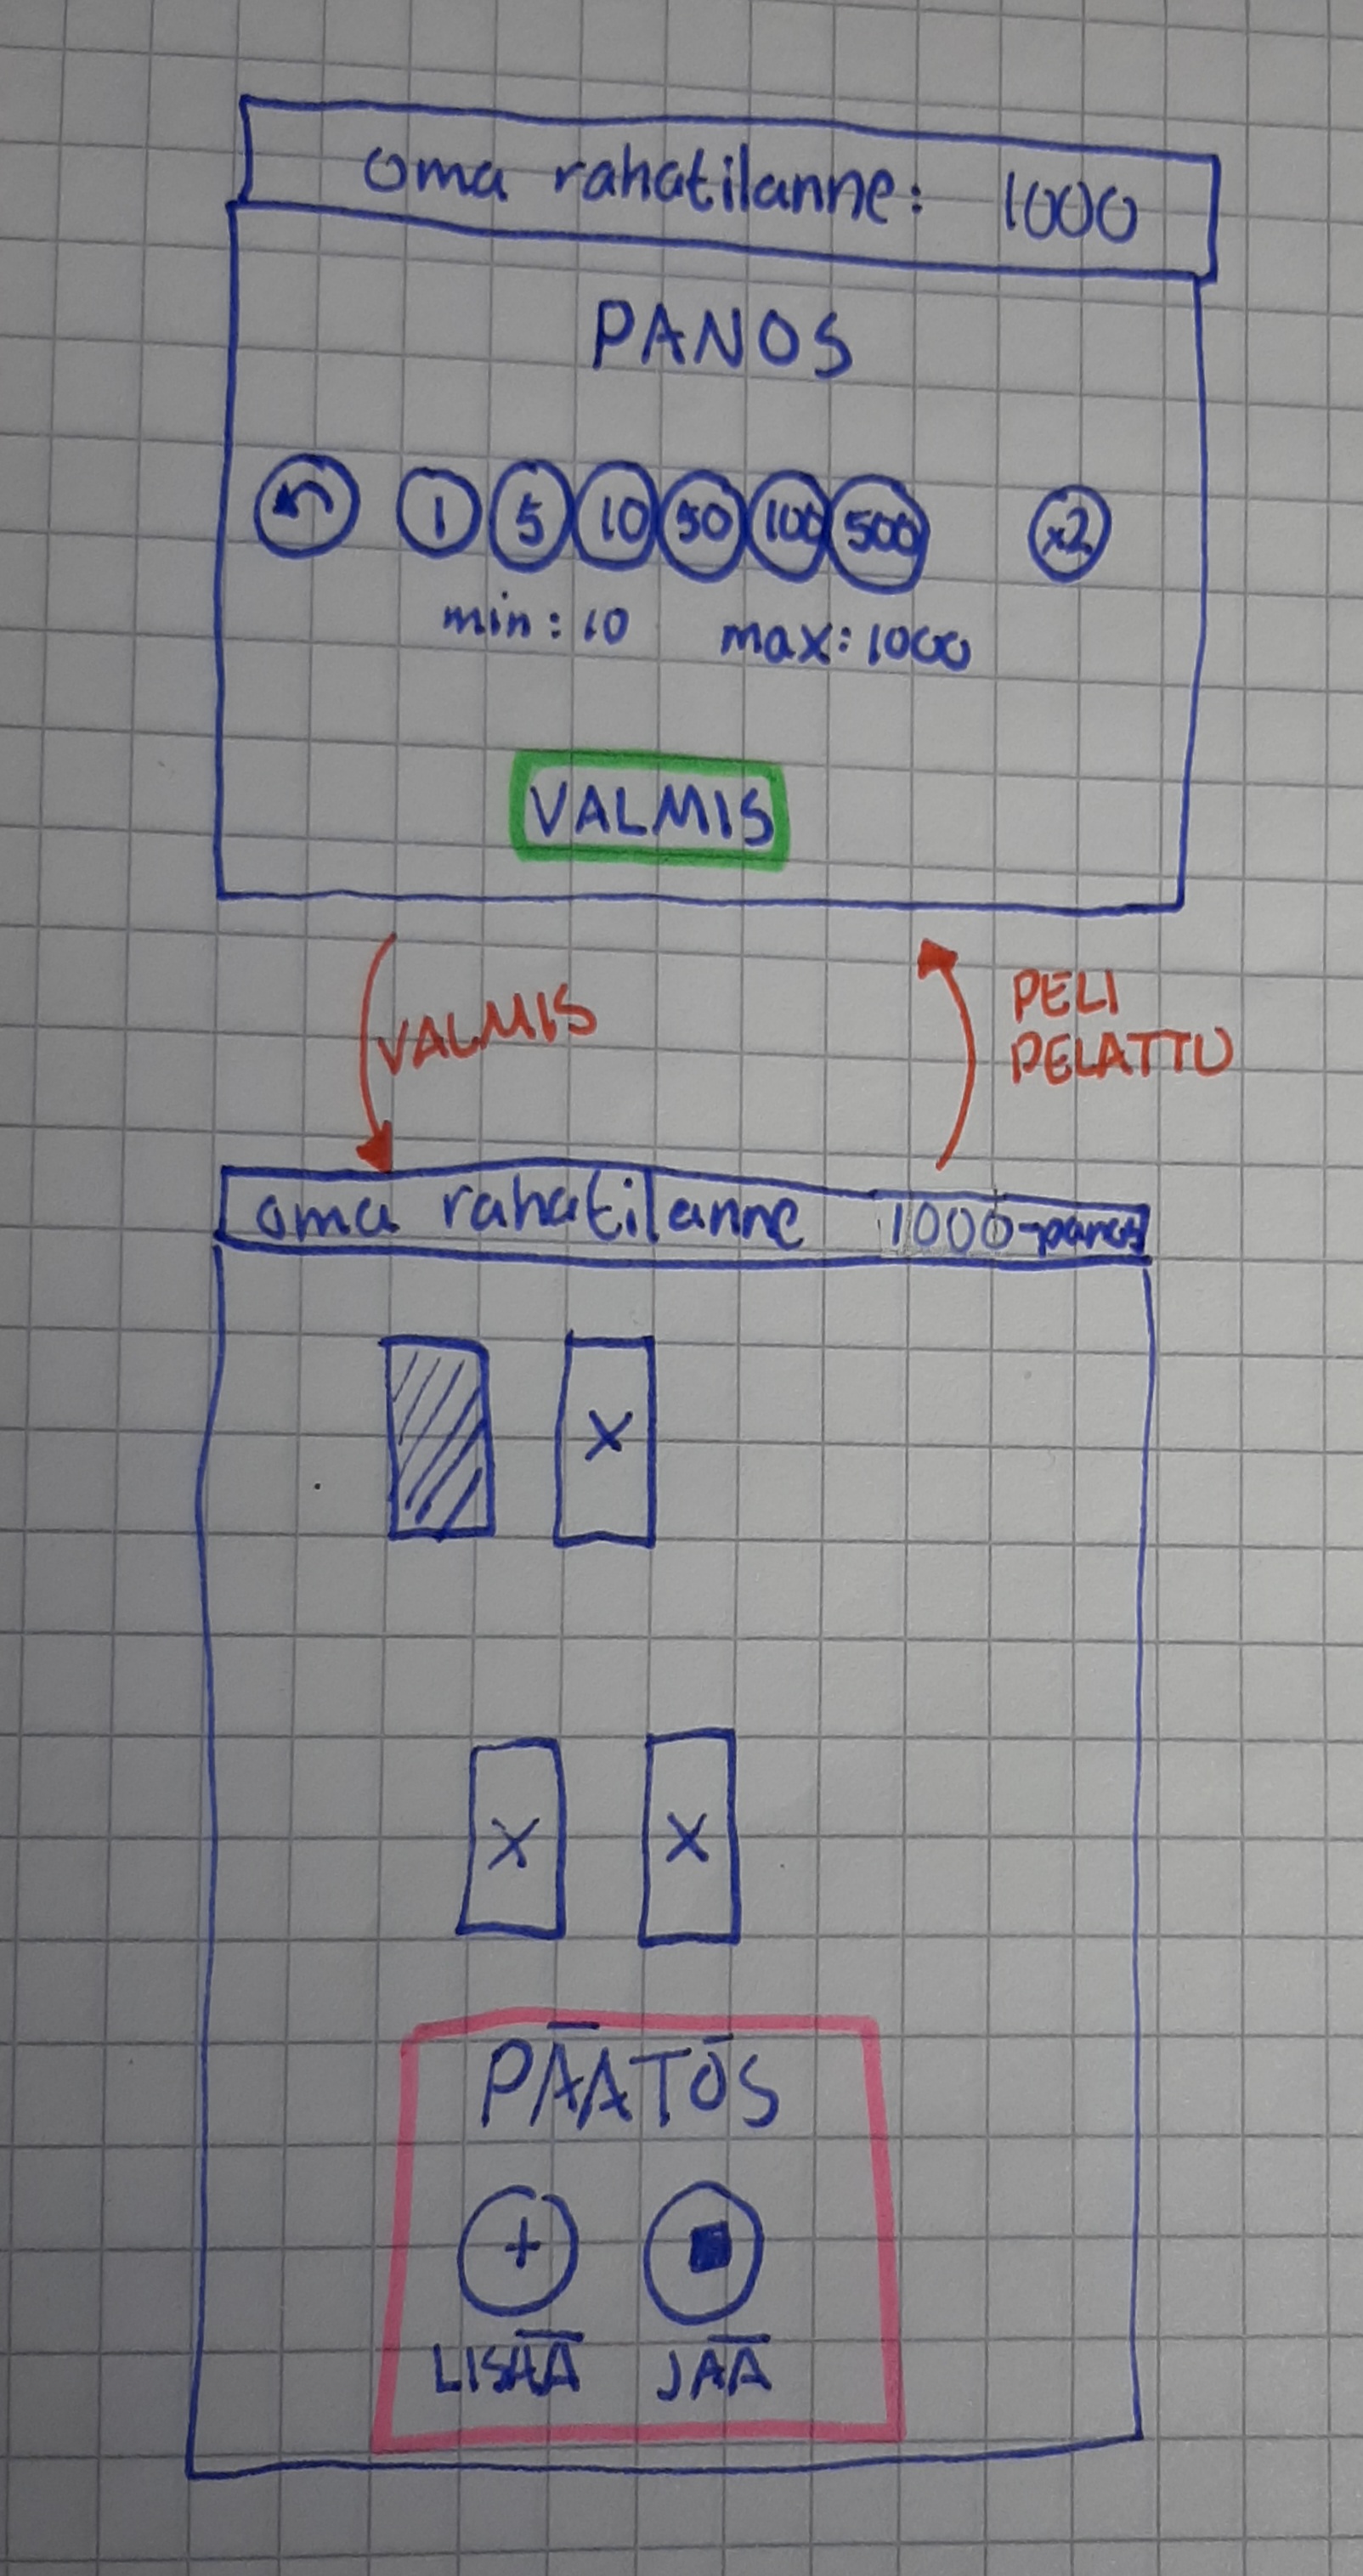 oma rahatilanne: 1000
PANOS
1 5 10 50 100 500 x2
min: 10 max: 1000
VALMIS
VALMIS
PELI
PELATTU
oma rahatilanne 1000-panos
X
X X
PÄÄTÖS
+
LISÄÄ JÄÄ